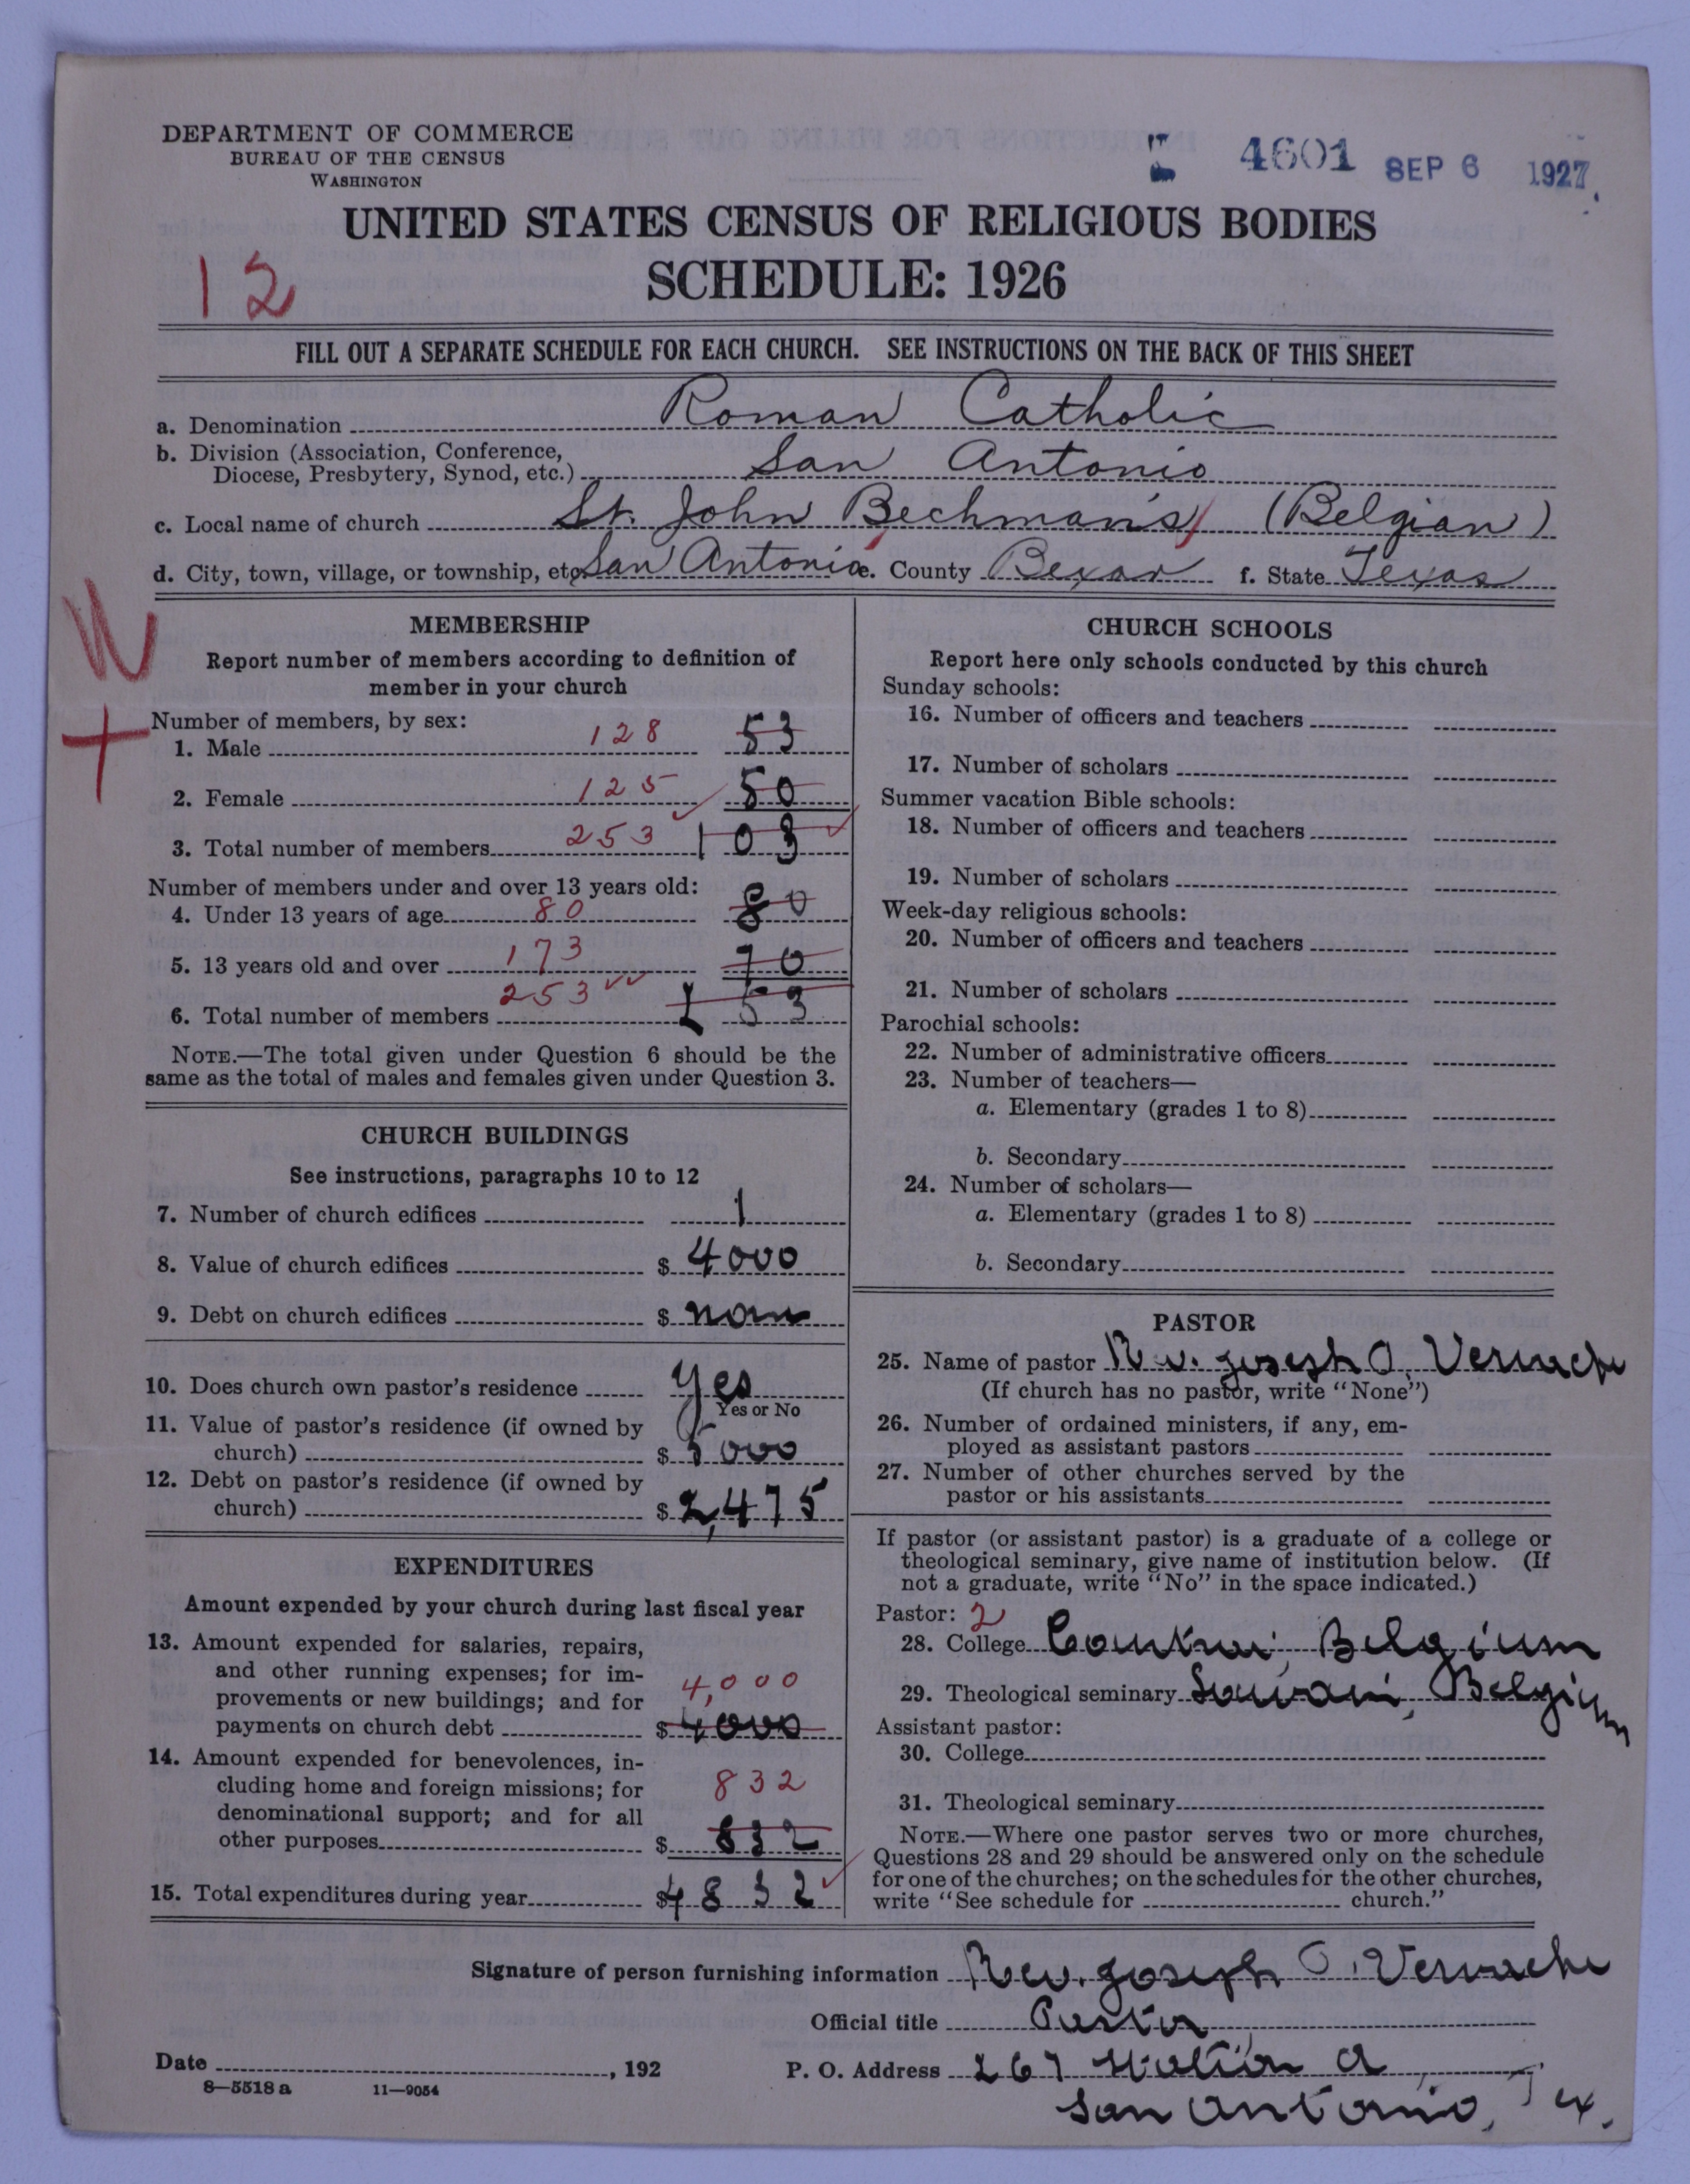 DEPARTMENT OF COMMERCE
BUREAU OF THE CENSUS
WASHINGTON
4601 SEP 6 1927
UNITED STATES CENSUS OF RELIGIOUS BODIES
SCHEDULE: 1926
12
FILL OUT A SEPARATE SCHEDULE FOR EACH CHURCH. SEE INSTRUCTIONS ON THE BACK OF THIS SHEET
a. Denomination Roman Catholic
b. Division (Association, Conference,
Diocese, Presbytery, Synod, etc.) San Antonio
c. Local name of church St. John Bechman's (Belgian)
d. City, town, village, or township, etc. San Antonio e. County Bexar f. State Texas
MEMBERSHIP
Report number of members according to definition of
member in your church
Number of members, by sex:
1. Male 128 53
2. Female 125 50
3. Total number of members 253 103
Number of members under and over 13 years old:
4. Under 13 years of age 80 80
5. 13 years old and over 173 70
6. Total number of members 253 153
NOTE.—The total given under Question 6 should be the
same as the total of males and females given under Question 3.
CHURCH BUILDINGS
See instructions, paragraphs 10 to 12
7. Number of church edifices 1
8. Value of church edifices $ 4000
9. Debt on church edifices $
10. Does church own pastor's residence yes
Yes or No
11. Value of pastor's residence (if owned by
church) $ 5000
12. Debt on pastor's residence (if owned by
church) $ 2,475
EXPENDITURES
Amount expended by your church during last fiscal year
13. Amount expended for salaries, repairs,
and other running expenses; for im-
provements or new buildings; and for 4,000
payments on church debt $ 4000
14. Amount expended for benevolences, in-
cluding home and foreign missions; for 832
denominational support; and for all
other purposes $ 832
15. Total expenditures during year $ 4832
CHURCH SCHOOLS
Report here only schools conducted by this church
Sunday schools:
16. Number of officers and teachers
17. Number of scholars
Summer vacation Bible schools:
18. Number of officers and teachers
19. Number of scholars
Week-day religious schools:
20. Number of officers and teachers
21. Number of scholars
Parochial schools:
22. Number of administrative officers
23. Number of teachers—
a. Elementary (grades 1 to 8)
b. Secondary
24. Number of scholars—
a. Elementary (grades 1 to 8)
b. Secondary
PASTOR
25. Name of pastor Rev. Joseph O.
(If church has no pastor, write "None")
26. Number of ordained ministers, if any, em-
ployed as assistant pastors
27. Number of other churches served by the
pastor or his assistants
If pastor (or assistant pastor) is a graduate of a college or
theological seminary, give name of institution below. (If
not a graduate, write "No" in the space indicated.)
Pastor: 2
28. College Belgium
29. Theological seminary Belgium
Assistant pastor:
30. College
31. Theological seminary
NOTE.—Where one pastor serves two or more churches,
Questions 28 and 29 should be answered only on the schedule
for one of the churches; on the schedules for the other churches,
write "See schedule for church."
Signature of person furnishing information Rev. Joseph O.
Official title Pastor
Date , 192 P. O. Address 267 Station A
8—5518 a 11—9054
San Antonio, Tex.